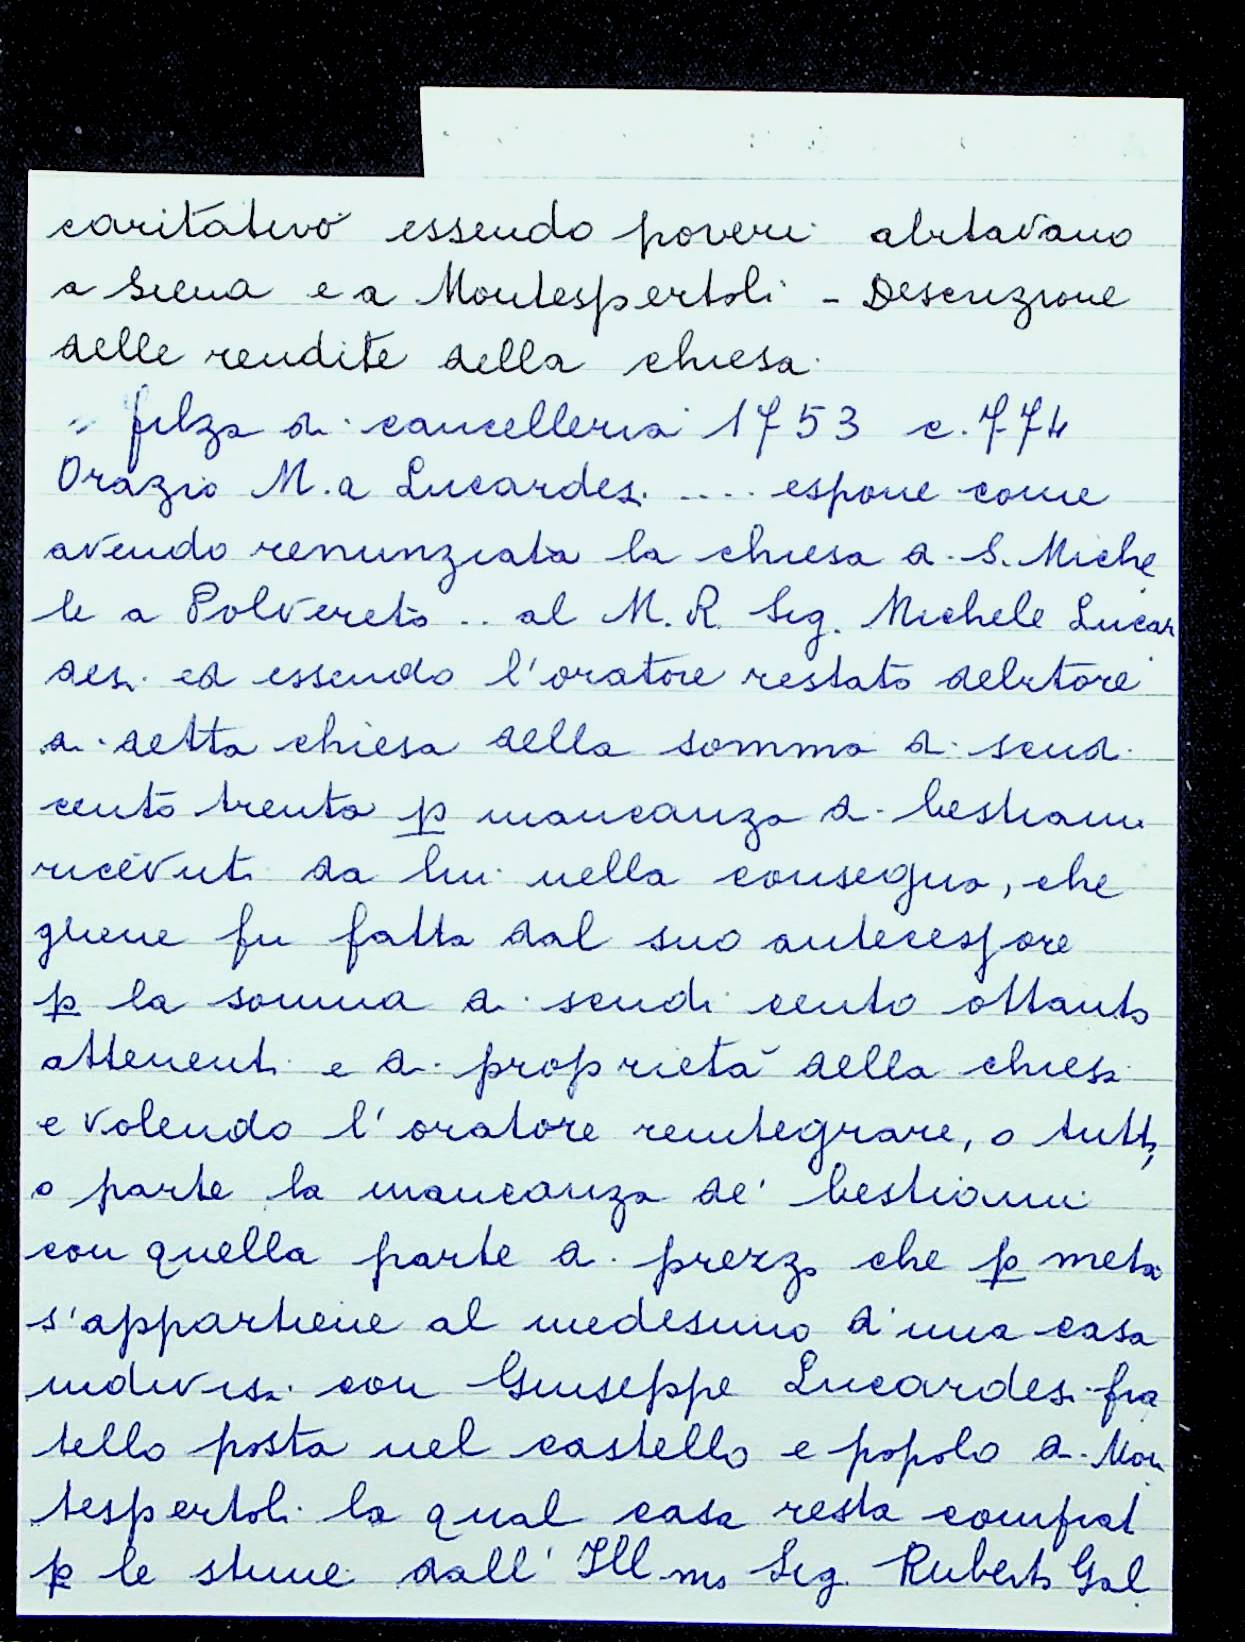 caritativo essendo poveri abitavano
a Siena e a Montespertoli - Descrizione
delle rendite della chiesa.
" filza di cancelleria 1753 c. 774
Orazio M.a Lucardesi .... espone come
avendo renunziata la chiesa di S. Miche
le a Polvereto .. al M. R. Sig. Michele Lucar
desi ed essendo l'oratore restato debitore
di detta chiesa della somma di scudi
cento trenta p mancanza di bestiami
ricevuti da lui nella consegna, che
gliene fu fatta dal suo antecessore
p la somma di scudi cento ottanta
attenenti e di proprietà della chiesa
e volendo l'oratore reintegrare, o tutta,
o parte la mancanza de' bestiami
con quella parte di prezzo che p metà
s'appartiene al medesimo d'una casa
indivisa con Giuseppe Lucardesi fra
tello posta nel castello e popolo di Mon
tespertoli la qual casa resta comprat
p le stime dall' Ill mo Sig. Ruberto Gal